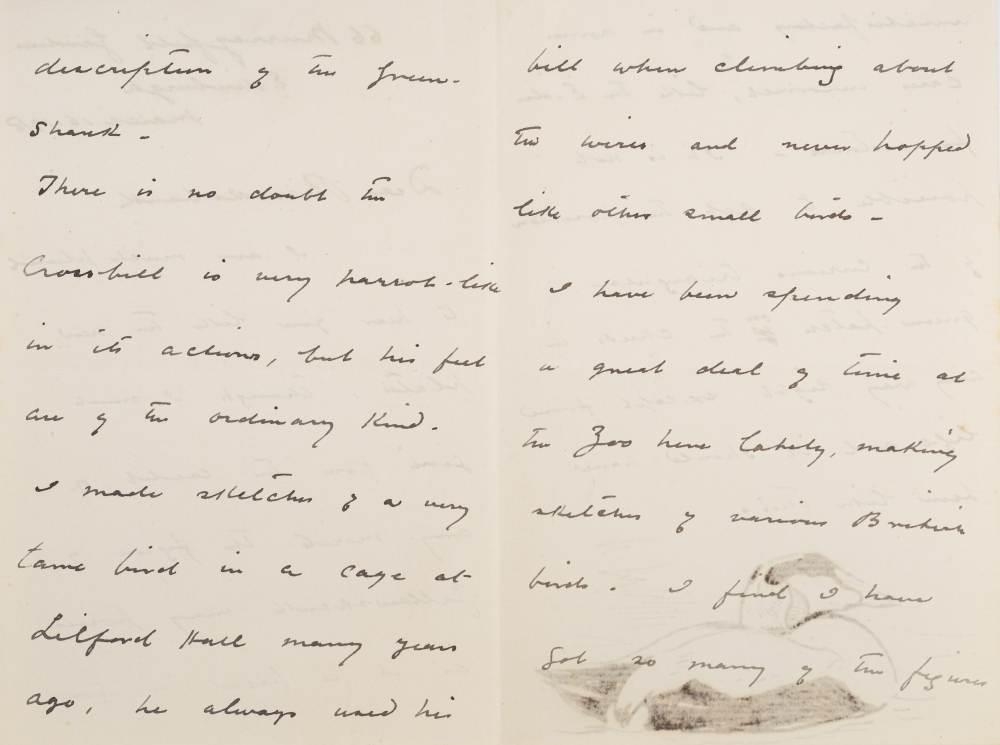 description of the Green-
Shank -
There is no doubt the
Crossbill is very parrot-like
in its actions, but his feet
are of the ordinary kind.
I made sketches of a very
tame bird in a cage at
Lilford Hall many years
ago, he always used his
bill when climbing about
the wires and never hopped
like other small birds -
I have been spending
a great deal of time at
the Zoo here lately, making
sketches of various British
birds. I find I have
got so many of the figures